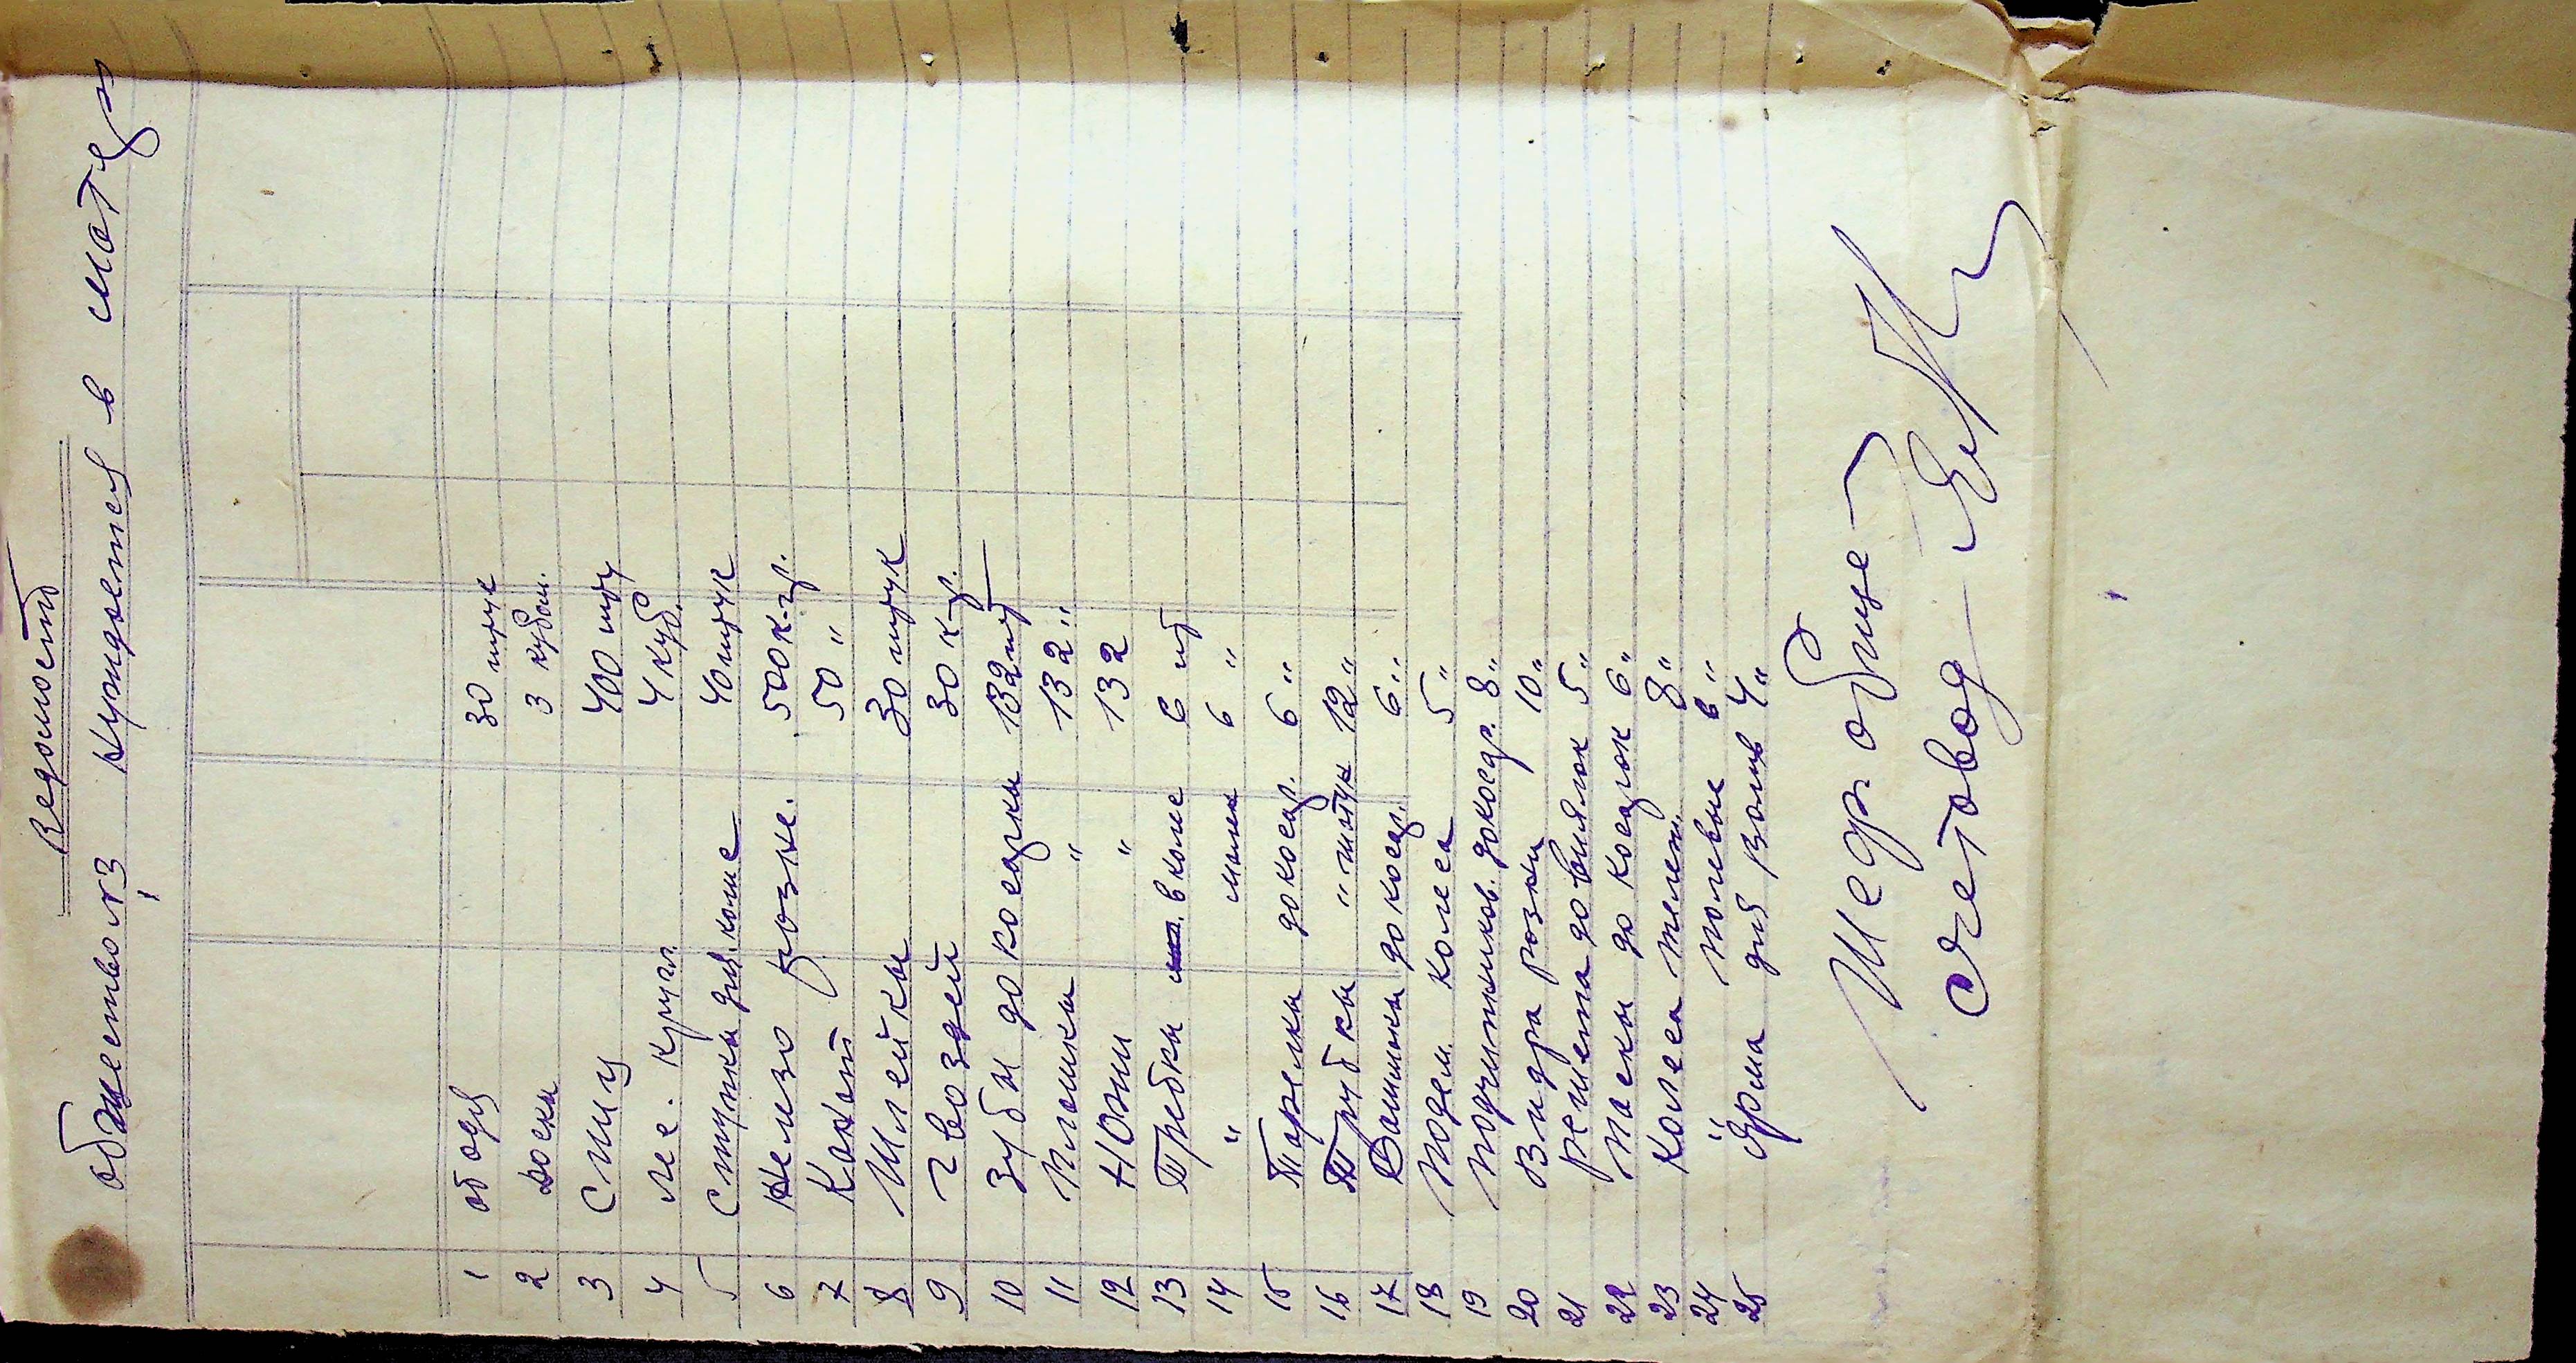 Ведомость
общество № 3 нуждается в матер
1 ободя 30 штук
2 доски 3 кубом.
3 спиц 400 шту
4 ле. кругл. 4 куб.
5 Ступки для коліс 40 штук
6 железо разне. 500 к-гр.
7 Канат 50 "
8 Шлейки 30 штук
9 гвоздей 30 к-гр.
10 Зубы до косарки 132 шт
11 Плашки " 132 "
12 Ножи " 132
13 Требки в коліе 6 шт
14 " малые 6 "
15 Тарелки до косар. 6 "
16 Трубки " шатун 12 "
17 Вашики до косар. 6 "
18 Подем. колеса 5 "
19 подчипников. до косар. 8 "
20 Видра розни 10 "
21 решета до виялок 5 "
22 паски до косарок 6 "
23 колеса тележ. 8 "
24 " полевые 6 "
25 Ярма для волив 4 "
Шедр обще
Счетовод